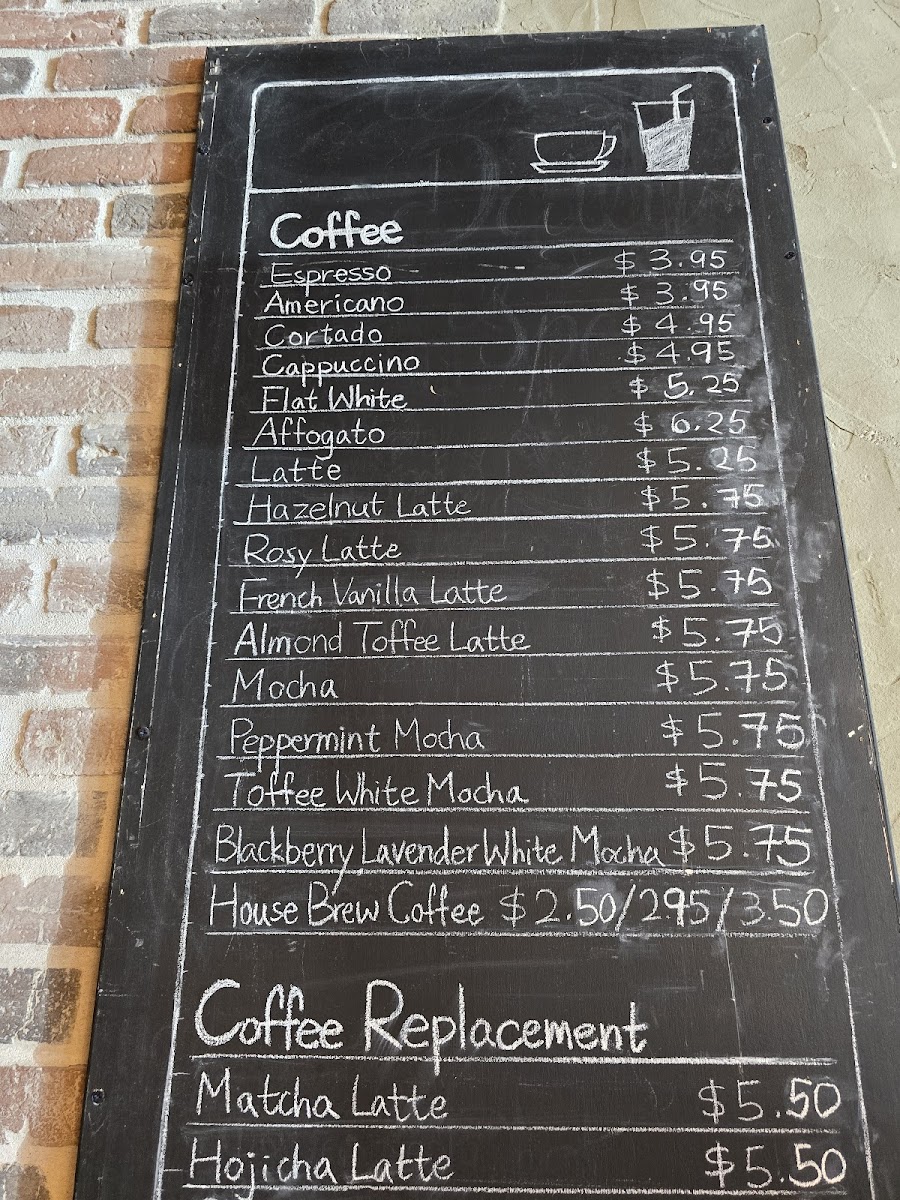 Coffee
Espresso $3.95
Americano $3.95
Cortado $4.95
Cappuccino $4.95
Flat White $5.25
Affogato $6.25
Latte $5.25
Hazelnut Latte $5.75
Rosy Latte $5.75
French Vanilla Latte $5.75
Almond Toffee Latte $5.75
Mocha $5.75
Peppermint Mocha $5.75
Toffee White Mocha $5.75
Blackberry Lavender White Mocha $5.75
House Brew Coffee $2.50/295/3.50
Coffee Replacement
Matcha Latte $5.50
Hojicha Latte $5.50